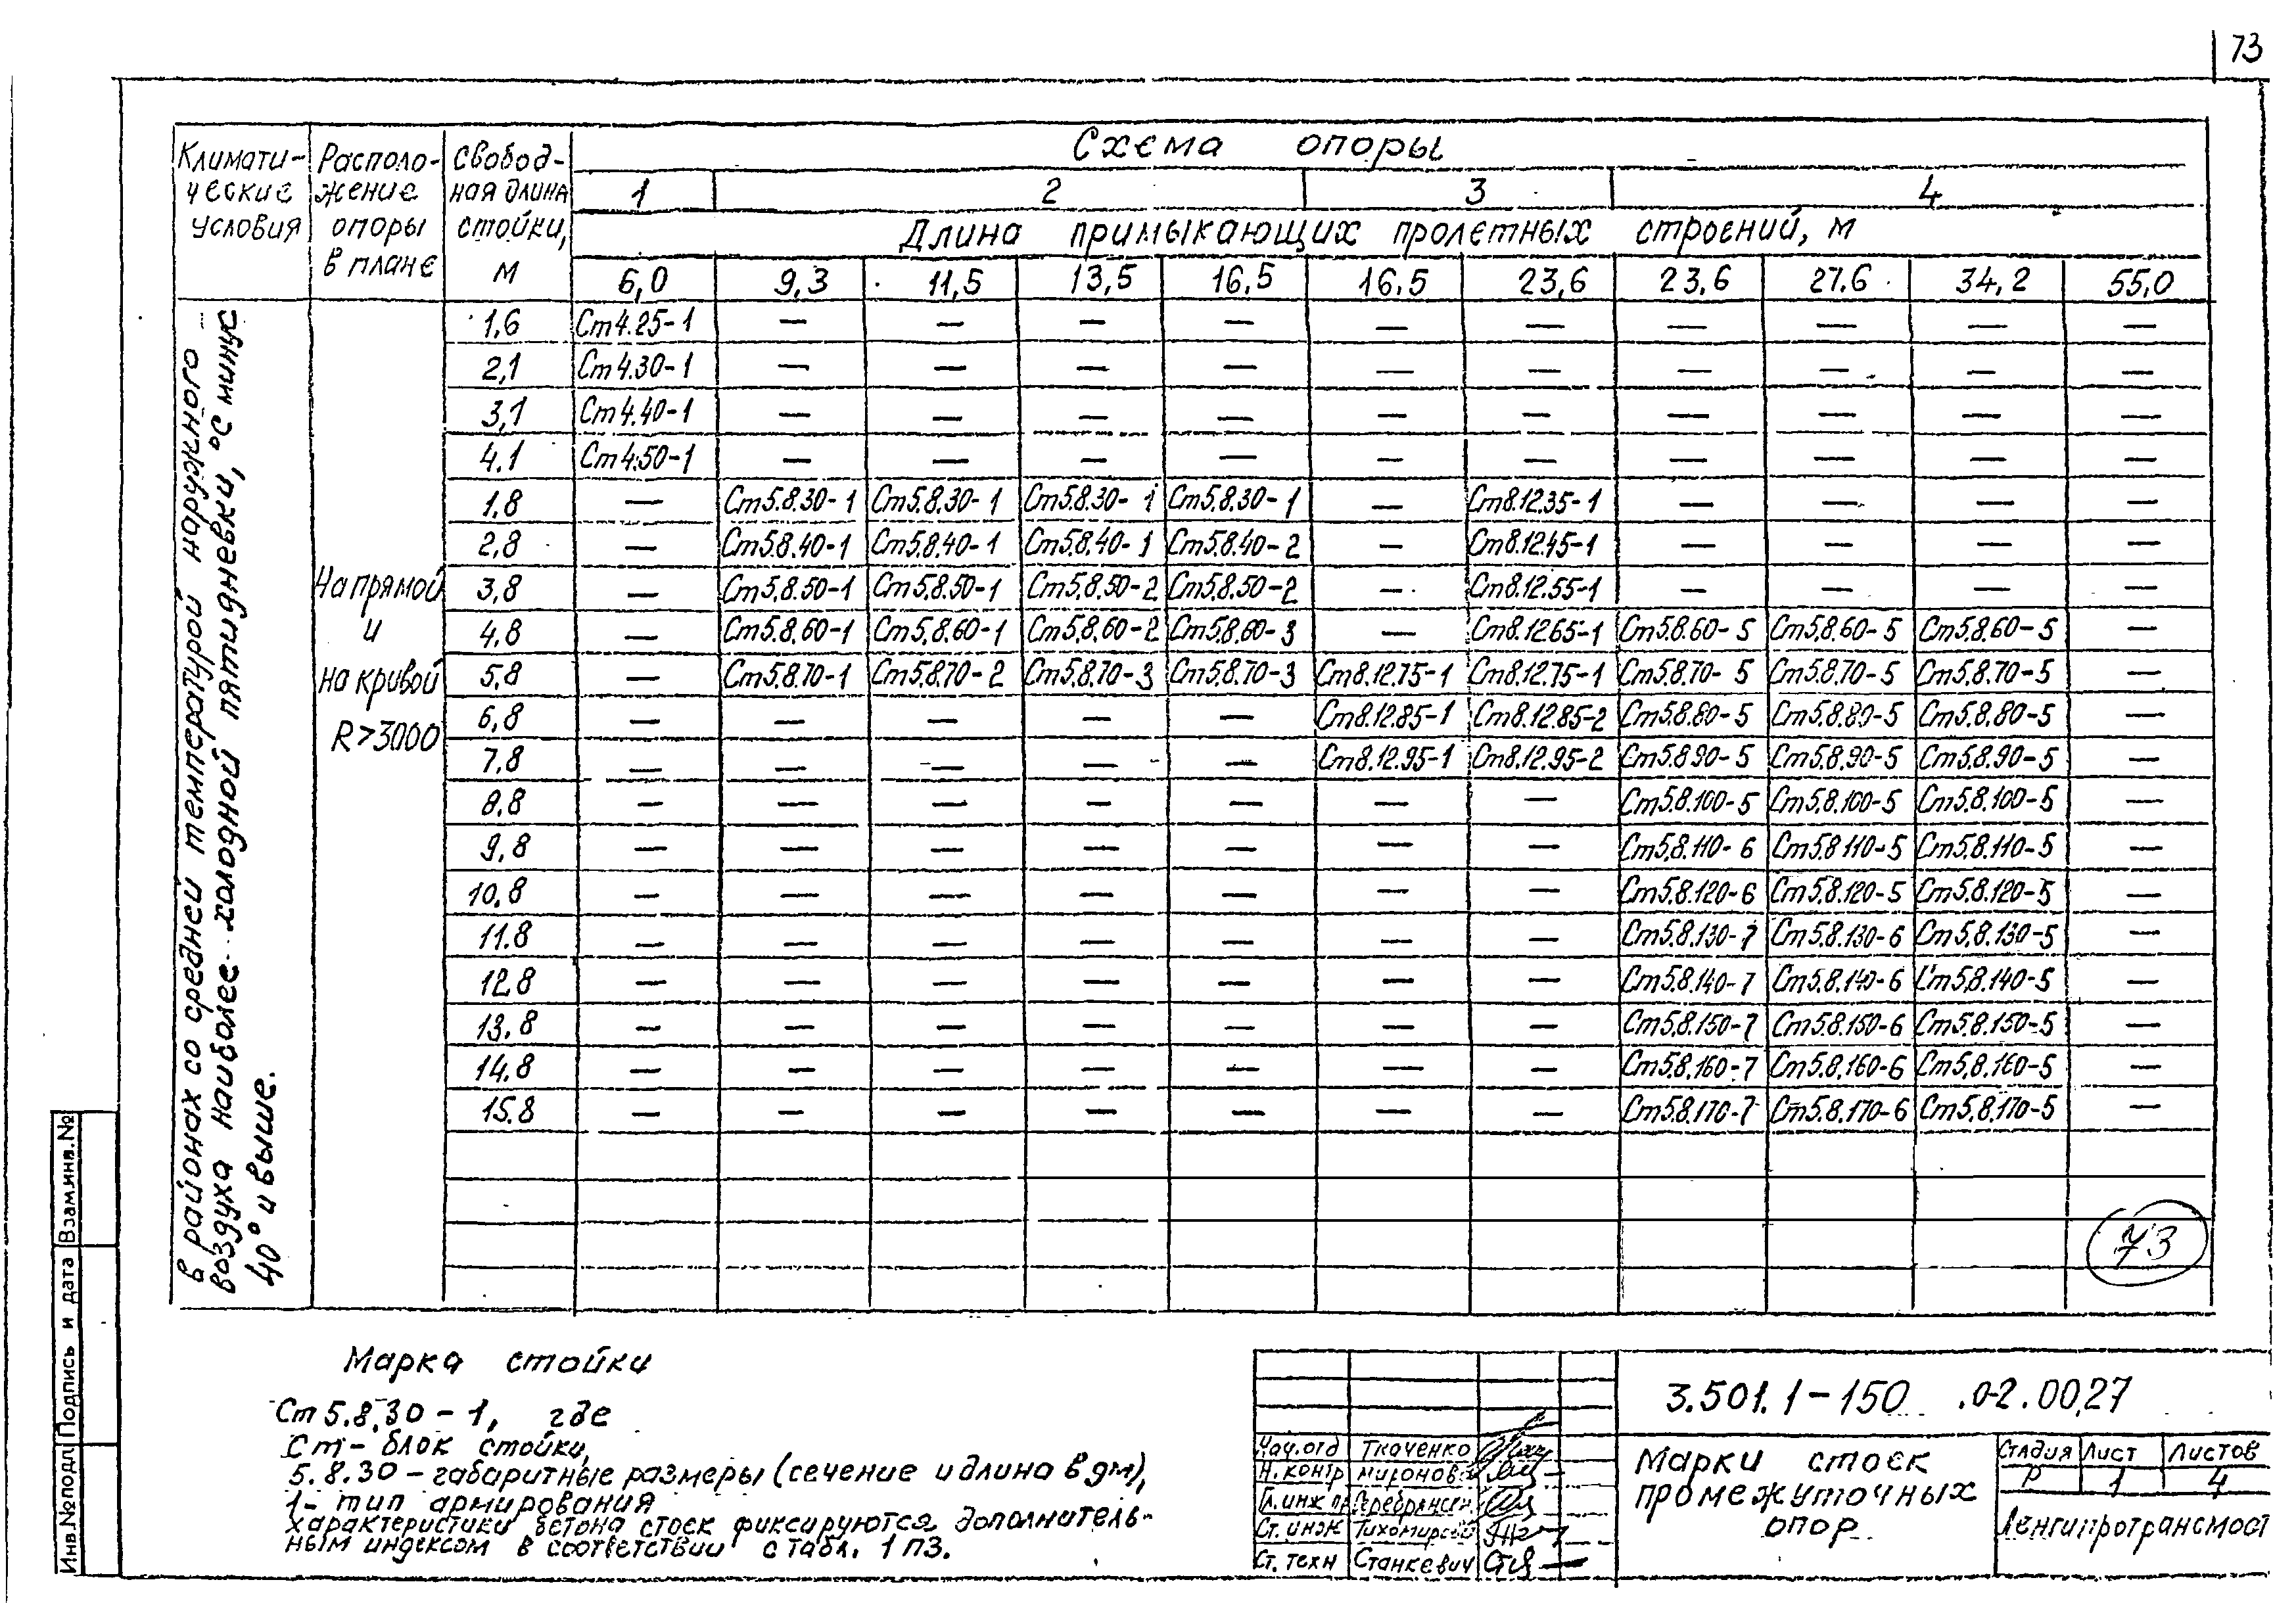 73
Климати- Располо- Свобод- Схема опоры
ческие жение ная длина 1 2 3 4
условия опоры стойки, Длина примыкающих пролетных строений, м
в плане м 6,0 9,3 11,5 13,5 16,5 16,5 23,6 23,6 27.6 34,2 55,0
в районах со средней температурой наружного
воздуха наиболее холодной пятидневки, °С минус
40° и выше.
На прямой
и
на кривой
R>3000
1,6 Ст4.25-1 — — — — — — — — — —
2,1 Ст4.30-1 — — — — — — — — — —
3,1 Ст4.40-1 — — — — — — — — — —
4.1 Ст4.50-1 — — — — — — — — — —
1,8 — Ст5.8.30-1 Ст5.8.30-1 Ст5.8.30-1 Ст5.8.30-1 — Ст8.12.35-1 — — — —
2,8 — Ст5.8.40-1 Ст5.8.40-1 Ст5.8.40-1 Ст5.8.40-2 — Ст8.12.45-1 — — — —
3,8 — Ст5.8.50-1 Ст5.8.50-1 Ст5.8.50-2 Ст5.8.50-2 — Ст8.12.55-1 — — — —
4,8 — Ст5.8.60-1 Ст5.8.60-1 Ст5.8.60-2 Ст5.8.60-3 — Ст8.12.65-1 Ст5.8.60-5 Ст5.8.60-5 Ст5.8.60-5 —
5,8 — Ст5.8.70-1 Ст5.8.70-2 Ст5.8.70-3 Ст5.8.70-3 Ст8.12.75-1 Ст8.12.75-1 Ст5.8.70-5 Ст5.8.70-5 Ст5.8.70-5 —
6,8 — — — — — Ст8.12.85-1 Ст8.12.85-2 Ст5.8.80-5 Ст5.8.80-5 Ст5.8.80-5 —
7,8 — — — — — Ст8.12.95-1 Ст8.12.95-2 Ст5.8.90-5 Ст5.8.90-5 Ст5.8.90-5 —
8,8 — — — — — — — Ст5.8.100-5 Ст5.8.100-5 Ст5.8.100-5 —
9,8 — — — — — — — Ст5.8.110-6 Ст5.8.110-5 Ст5.8.110-5 —
10,8 — — — — — — — Ст5.8.120-6 Ст5.8.120-5 Ст5.8.120-5 —
11.8 — — — — — — — Ст5.8.130-7 Ст5.8.130-6 Ст5.8.130-5 —
12,8 — — — — — — — Ст5.8.140-7 Ст5.8.140-6 Ст5.8.140-5 —
13.8 — — — — — — — Ст5.8.150-7 Ст5.8.150-6 Ст5.8.150-5 —
14,8 — — — — — — — Ст5.8.160-7 Ст5.8.160-6 Ст5.8.160-5 —
15.8 — — — — — — — Ст5.8.170-7 Ст5.8.170-6 Ст5.8.170-5 —
73
Марка стойки
Ст 5.8.30-1, где
Ст- блок стойки,
5.8.30 – габаритные размеры (сечение и длина в дм),
1- тип армирования
характеристики бетона стоек фиксируются дополнитель-
ным индексом в соответствии с табл. 1 ПЗ.
3.501.1-150 .0-2.00.27
Нач.отд Ткаченко
Н.контр Миронов
Гл.инж пр
Ст. инж
Ст. техн Станкевич
Марки стоек
промежуточных
опор
Стадия Лист Листов
Р 1 4
Ленгипротрансмост
Взам.инв.№
Подпись и дата
Инв.№подл